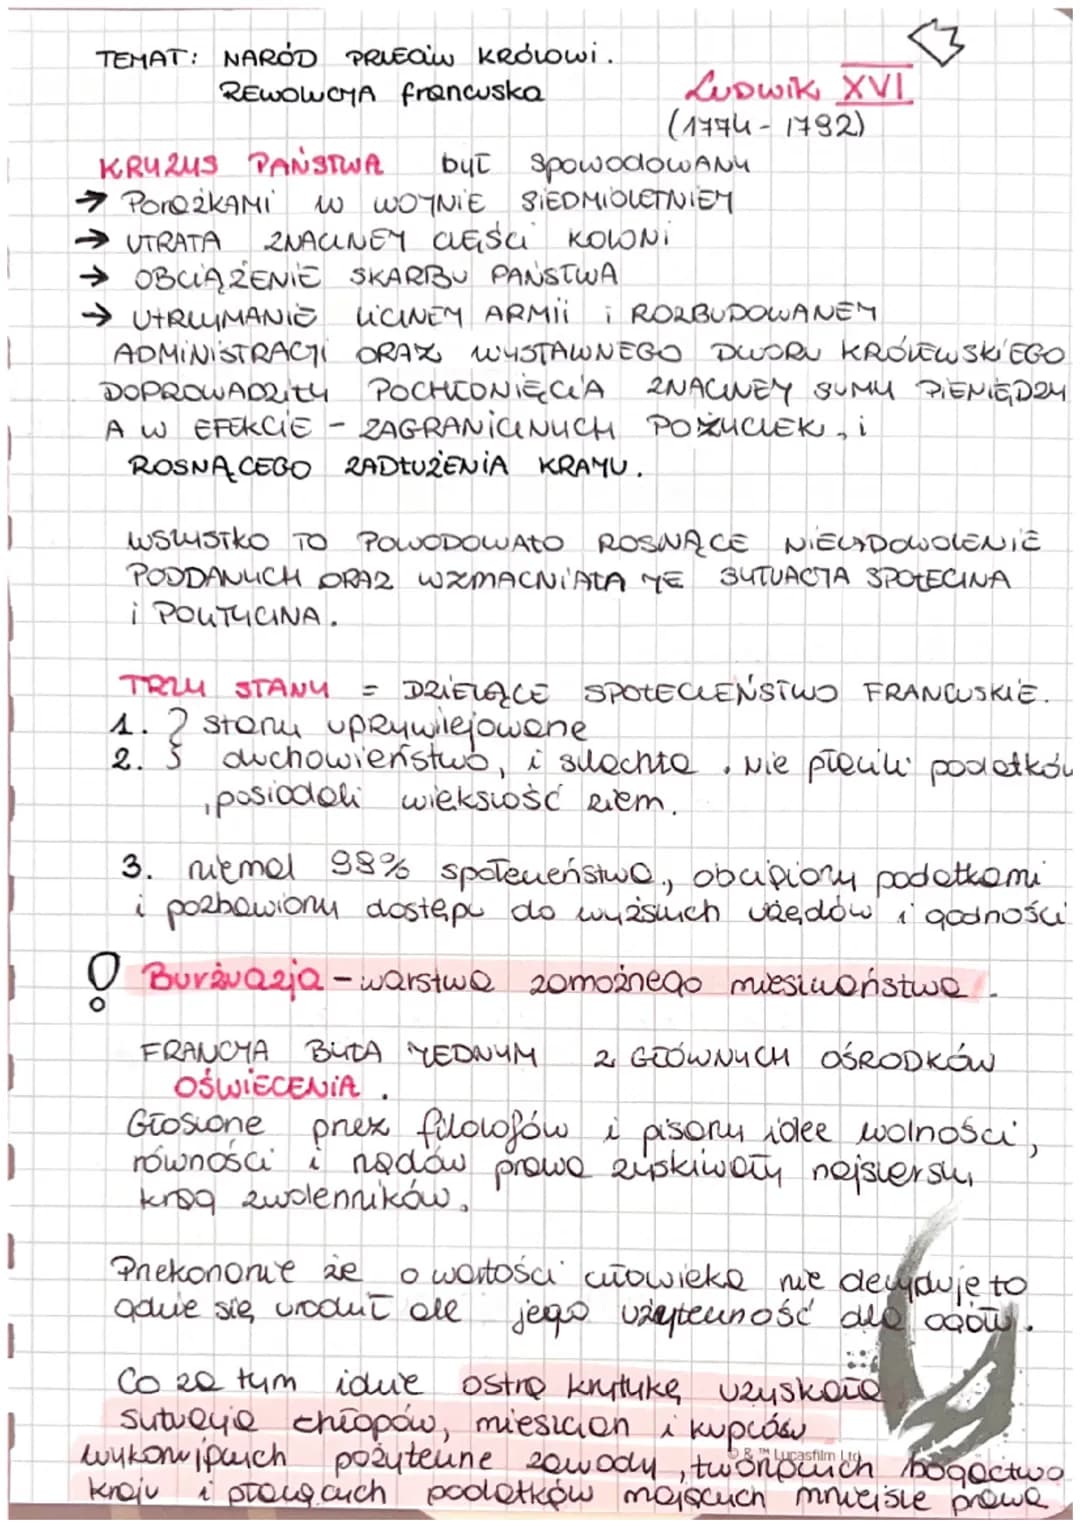 TEMAT: NARÓD PRZECIW KRÓLOWI.
REWOLUCJA francuska
LUDWIK XVI
(1774 - 1792)
KRYZYS PAŃSTWA był SPOWODOWANY
→ PORAŻKAMI W WOJNIE SIEDMIOLETNIEJ
→ UTRATA ZNACZNEJ CZĘŚCI KOLONI
→ OBCIĄŻENIE SKARBU PAŃSTWA
→ UTRZYMANIE LICZNEJ ARMII i ROZBUDOWANEJ
ADMINISTRACJI ORAZ WYSTAWNEGO DWORU KRÓLEWSKIEGO
DOPROWADZIŁY POCHŁONIĘCIA ZNACZNEJ SUMY PIENIĘDZY
A W EFEKCIE - ZAGRANICZNYCH POŻYCZEK, i
ROSNĄCEGO ZADŁUŻENIA KRAJU.
WSZYSTKO TO POWODOWAŁO ROSNĄCE NIEZADOWOLENIE
PODDANYCH ORAZ WZMACNIAŁA JE SYTUACJA SPOŁECZNA
i POLITYCZNA.
TRZY STANY = DZIELĄCE SPOŁECZEŃSTWO FRANCUSKIE.
1. } stany uprzywilejowane
2. } duchowieństwo, i szlachta. Nie płacili podatków
, posiadali większość ziem.
3. niemal 98% społeczeństwa, obciążony podatkami
i pozbawiony dostępu do wyższych urzędów i godności
! Burżuazja - warstwa zamożnego mieszczaństwa.
FRANCJA BYŁA JEDNYM Z GŁÓWNYCH OŚRODKÓW
OŚWIECENIA.
Głoszone przez filozofów i pisarzy idee wolności,
równości i rządów prawa zyskiwały najszerszy
krąg zwolenników.
Przekonanie że o wartości człowieka nie decyduje to
gdzie się urodził ale jego użyteczność dla ogółu.
Co za tym idzie ostrą krytykę uzyskała
sytuacja chłopów, mieszczan i kupców
wykonujących pożyteczne zawody, tworzących bogactwo
kraju i płacących podatków mających mniejsze prawa
© & ™ Lucasfilm Ltd.